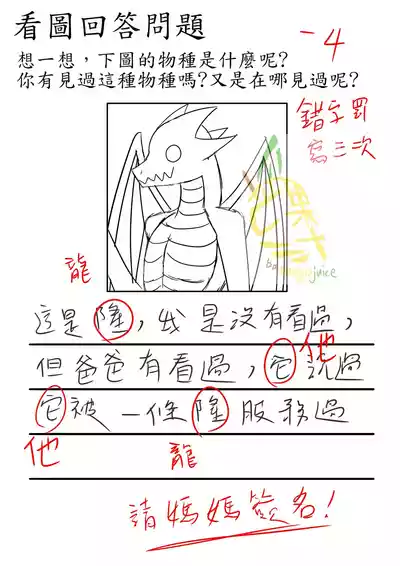 看圖回答問題
-4
想一想，下圖的物種是什麼呢?
你有見過這種物種嗎?又是在哪見過呢?
錯字罰
寫三次
juice
龍
這是隆，我是沒有看過，
他
但爸爸有看過，它說過
它被一條隆服務過
他
龍
請媽媽簽名!